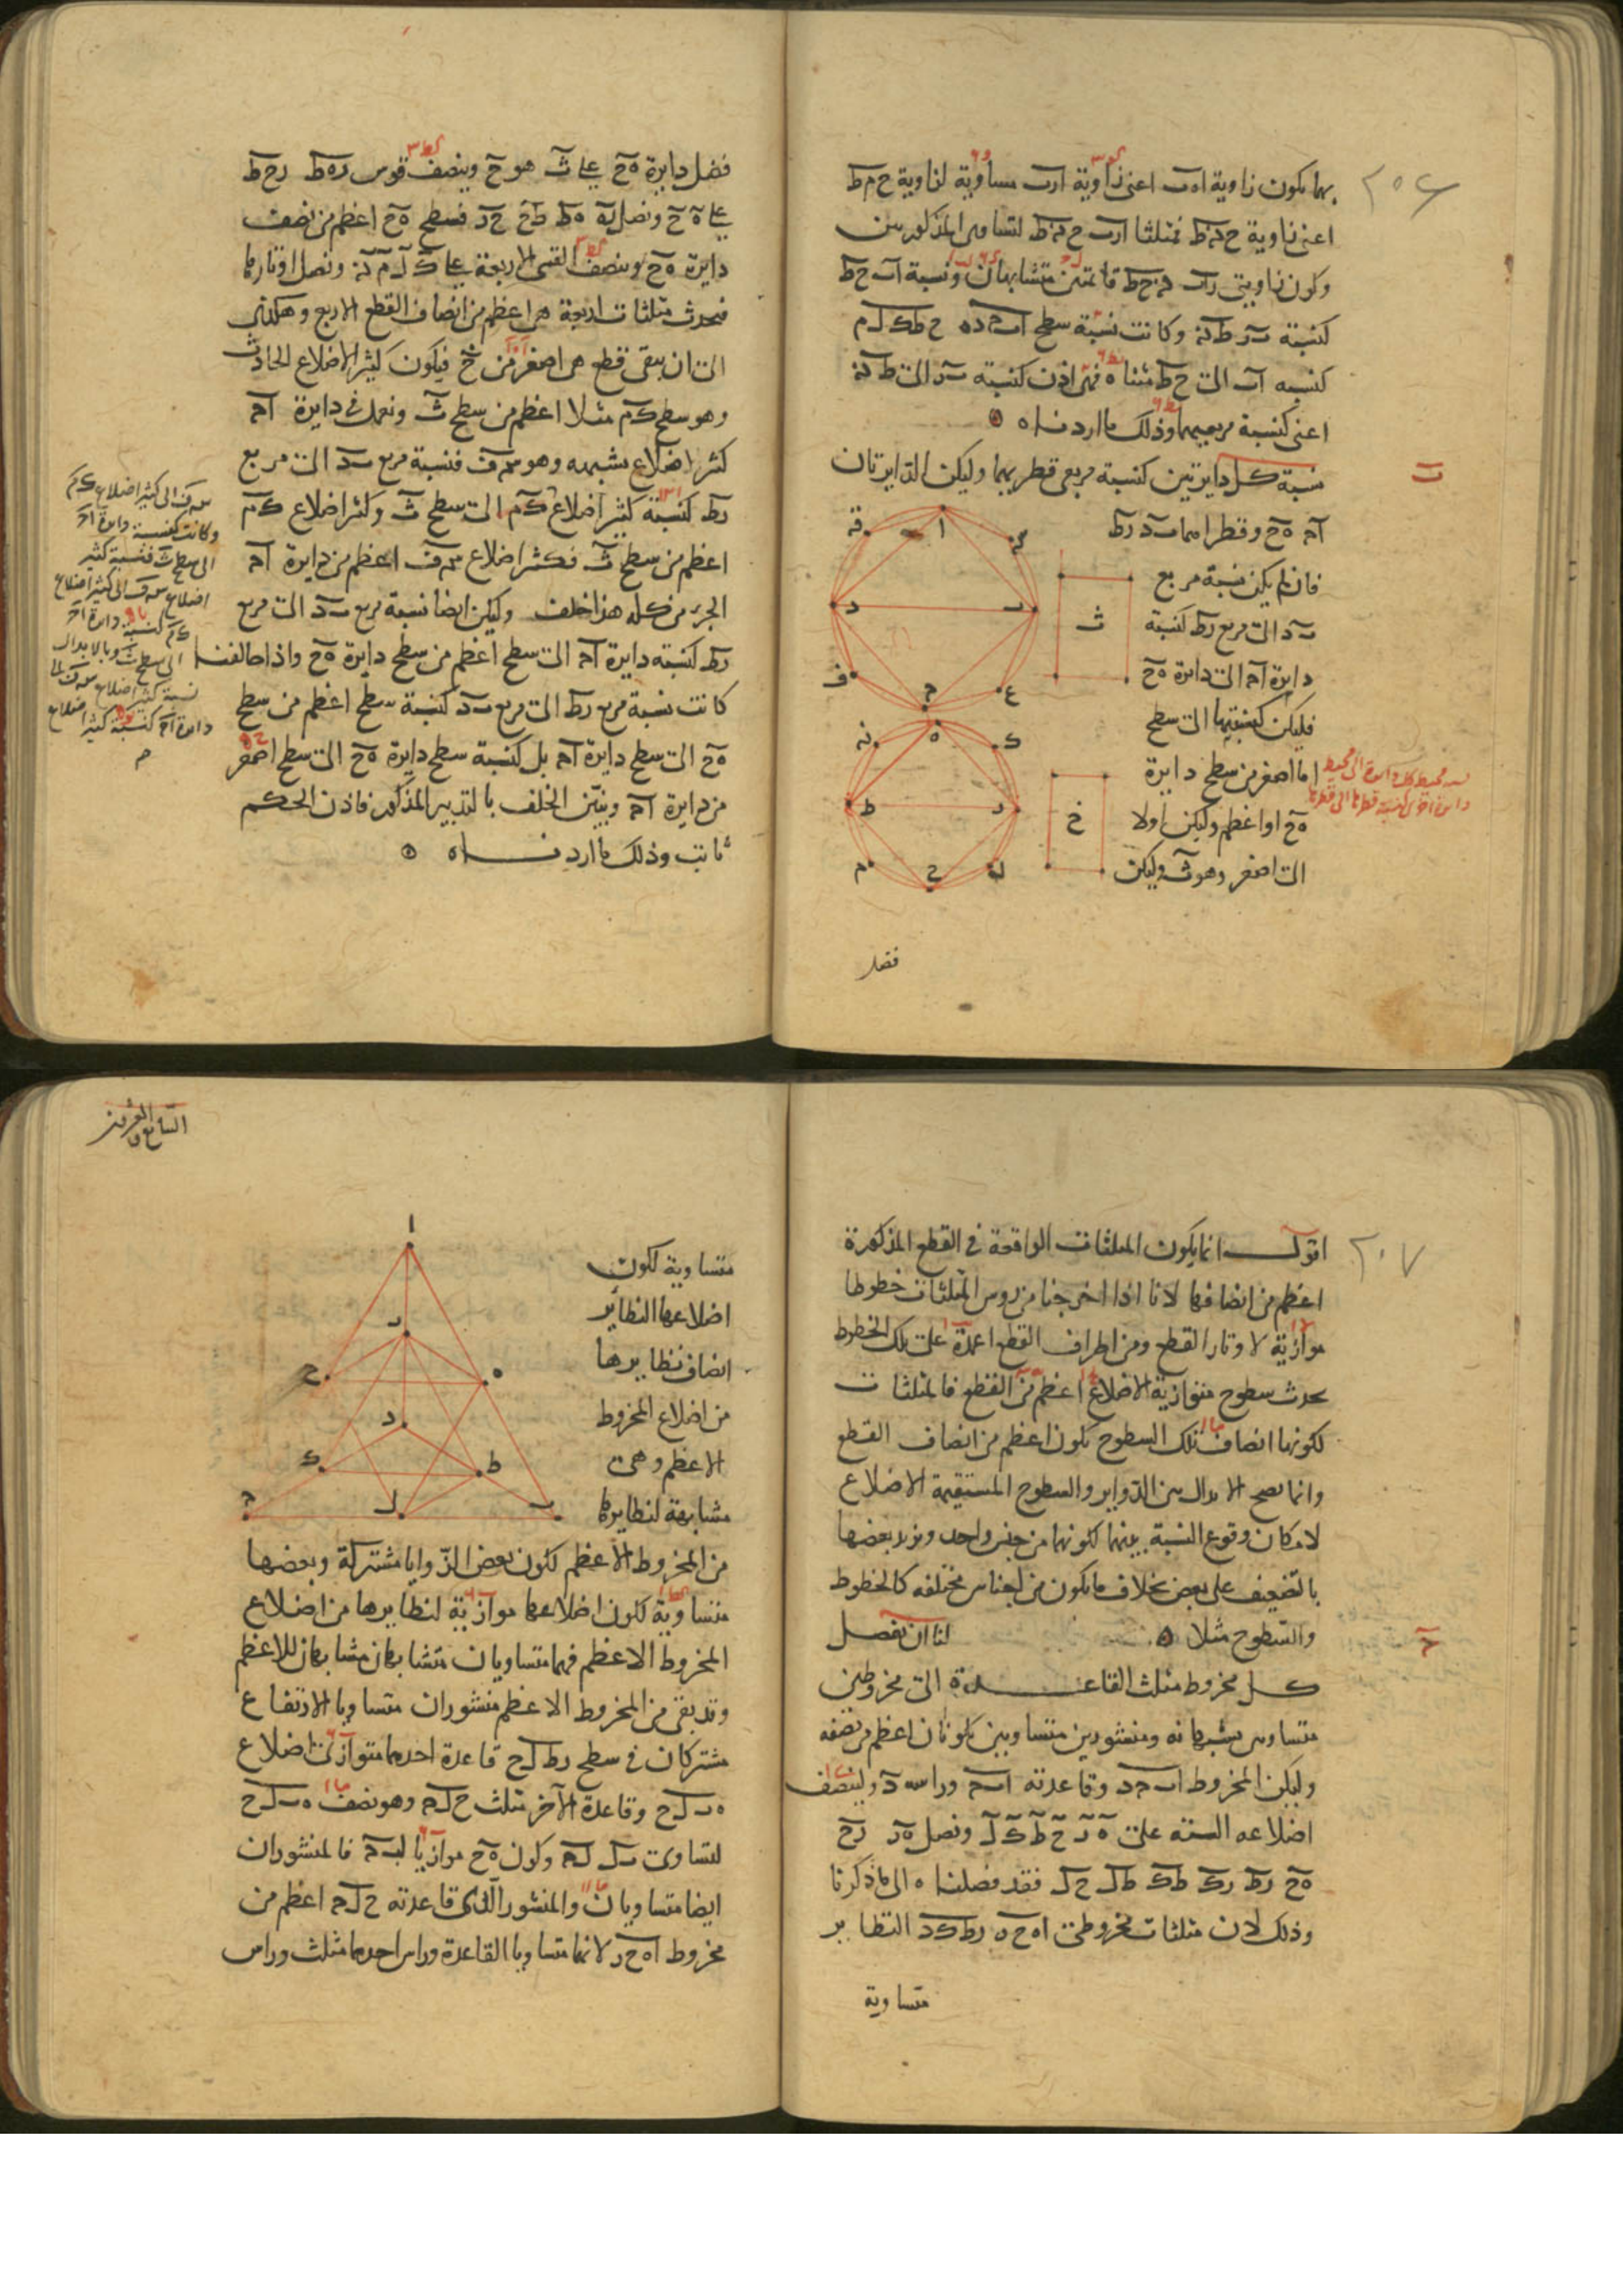 ٢٠٦
بهما يكون زاوية اهب اعنى زاوية ارب مساوية لزاوية ح م ط
اعنى زاوية ح نه ط فمثلثا ارب ح نه ط لتساوى المذكورتين
وكون زاويتى راب نه ح ط قائمتين متشابهان ونسبة اب ح ط
كنسبة بر ط نه وكانت نسبة سطح اب جـ د ه ح ط ك ل م
كنسبه اب الى ح ط مثناه فهى اذن كنسبه بر الى ط نه
اعنى كنسبة مربعيهما وذلك ما اردناه
ب
نسبة كل دايرتين كنسبة مربعى قطريهما وليكن الدايرتان
اجـ هح وقطراهما بد رط
فان لم يكن نسبة مربع
بد الى مربع رط كنسبة
دايرة اجـ الى دايرة هح
فليكن كنسبتها الى سطح
اما اصغر من سطح دايرة
هح او اعظم وليكن اولا
الى اصغر وهو ث وليكن
ا
د
ب
ف
ع
جـ
ث
ه
ك
ط
ر
م
ح
ل
خ
فضل
فضل دايرة هح على ث هو خ وينصف قوسى ره ط رح ط
على ه ح ونصل ره هط طح حر فسطح هح اعظم من نصف
دايرة هح وينصف القسى الاربعة على ك ل م نه ونصل اوتارها
فيحدث مثلثات اربعة هى اعظم من انصاف القطع الاربع وهكذا
الى ان يبقى قطع هى اصغر من خ فيكون كثير الاضلاع الحادث
وهو سطح كم مثلا اعظم من سطح ث ونعمل فى دايرة اجـ
كثير اضلاع يشبهه وهو سه ف فنسبة مربع بد الى مربع
رط كنسبة كثير اضلاع كم الى سطح ث وكثير اضلاع كم
اعظم من سطح ث فكثير اضلاع سه ف اعظم من دايرة اجـ
الجزء من كله هذا خلف وليكن ايضا نسبة مربع بد الى مربع
رط كنسبه دايرة اجـ الى سطح اعظم من سطح دايرة هح واذا خالفنا
كانت نسبة مربع رط الى مربع بد كنسبة سطح اعظم من سطح
هح الى سطح دايرة اجـ بل كنسبة سطح دايرة هح الى سطح اصغر
من دايرة اجـ ويتبين الخلف بالتدبير المذكور فاذن الحكم
ثابت وذلك ما اردناه
سه ف الى كثير اضلاع كم
وكانت كنسبة دايرة اجـ
الى سطح ث فنسبة كثير
اضلاع سه ف الى كثير اضلاع
كم كنسبة دايرة اجـ
الى سطح ث وبالابدال
نسبة كثير اضلاع سه ف الى
دايرة اجـ كنسبة كثير اضلاع
٢٠٧
اقول انما يكون المثلثات الواقعة فى القطع المذكورة
اعظم من انصافها لانا اذا اخرجنا من روس المثلثات خطوطا
موازية لاوتار القطع ومن اطراف القطع اعمدة على تلك الخطوط
يحدث سطوح متوازية الاضلاع اعظم من القطع فالمثلثات
لكونها انصاف تلك السطوح يكون اعظم من انصاف القطع
وانما يصح الابدال بين الدواير والسطوح المستقيمة الاضلاع
لامكان وقوع النسبة بينهما لكونهما من جنس واحد ويزيد بعضها
بالتضعيف على بعض بخلاف ما يكون من اجناس مختلفه كالخطوط
والسطوح مثلا لنا ان نفصل
جـ
كل مخروط مثلث القاعدة الى مخروطين
متساويين يشبهانه ومنشورين متساويين يكونان اعظم من نصفه
وليكن المخروط اب جـ د وقاعدته اب جـ وراسه د ولينصف
اضلاعه الستة على ه ر ح ط ك ل ونصل ه ر رح
هح رط رك طك طل حل فقد فصلناه الى ما ذكرنا
وذلك لان مثلثات مخروطى اهحر رط ك د النظاير
متساوية
ا
ر
ح
ه
د
ك
ط
جـ
ل
ب
متساوية لكون
اضلاعها النظاير
انصاف نظايرها
من اضلاع المخروط
الاعظم وهى
مشابهة لنظايرها
من المخروط الاعظم لكون بعض الزوايا مشتركة وبعضها
متساوية لكون اضلاعها موازية لنظايرها من اضلاع
المخروط الاعظم فهما متساويان متشابهان مشابهان للاعظم
وقد بقى من المخروط الاعظم منشوران متساويا الارتفاع
مشتركان فى سطح رط ل ح قاعدة احدهما متوازى اضلاع
ه ب ل ح وقاعدة الآخر مثلث ح ل جـ وهو نصف ه ب ل ح
لتساوى بل ل جـ وكون هح موازيا لب جـ فالمنشوران
ايضا متساويان والمنشور الذى قاعدته ح ل جـ اعظم من
مخروط اهحر لانهما متساويا القاعدة وراس احدهما مثلث وراس